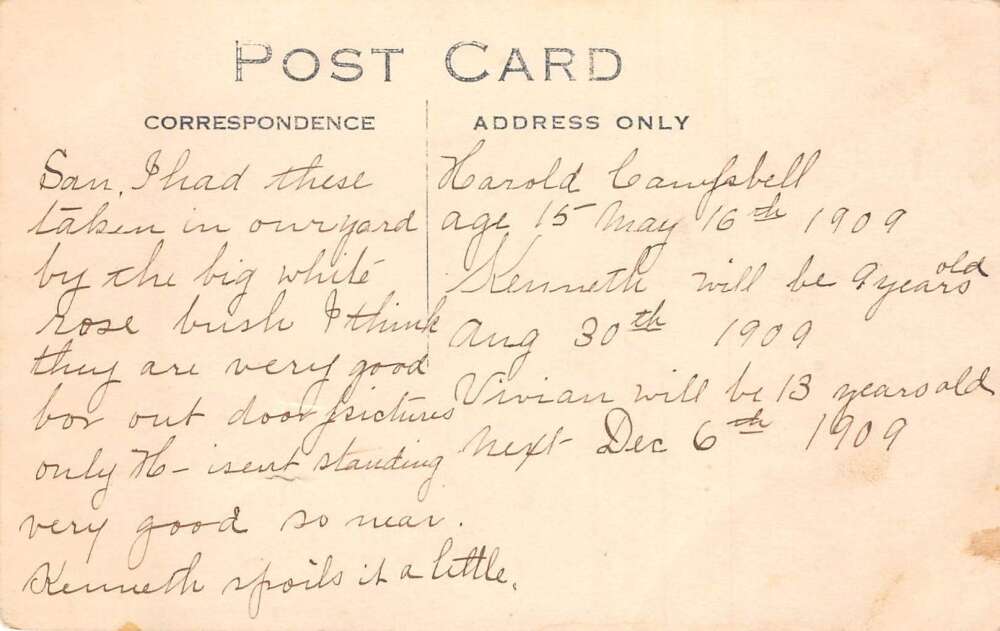 POST CARD
CORRESPONDENCE
San, I had these
taken in our yard
by the big white
rose bush I think
they are very good
for out door pictures
only H- isent standing
very good so near.
Kenneth spoils it a little.
ADDRESS ONLY
Harold Campbell
age 15 May 16th 1909
Kenneth will be 9 years old
Aug 30th 1909
Vivian will be 13 years old
next Dec 6th 1909